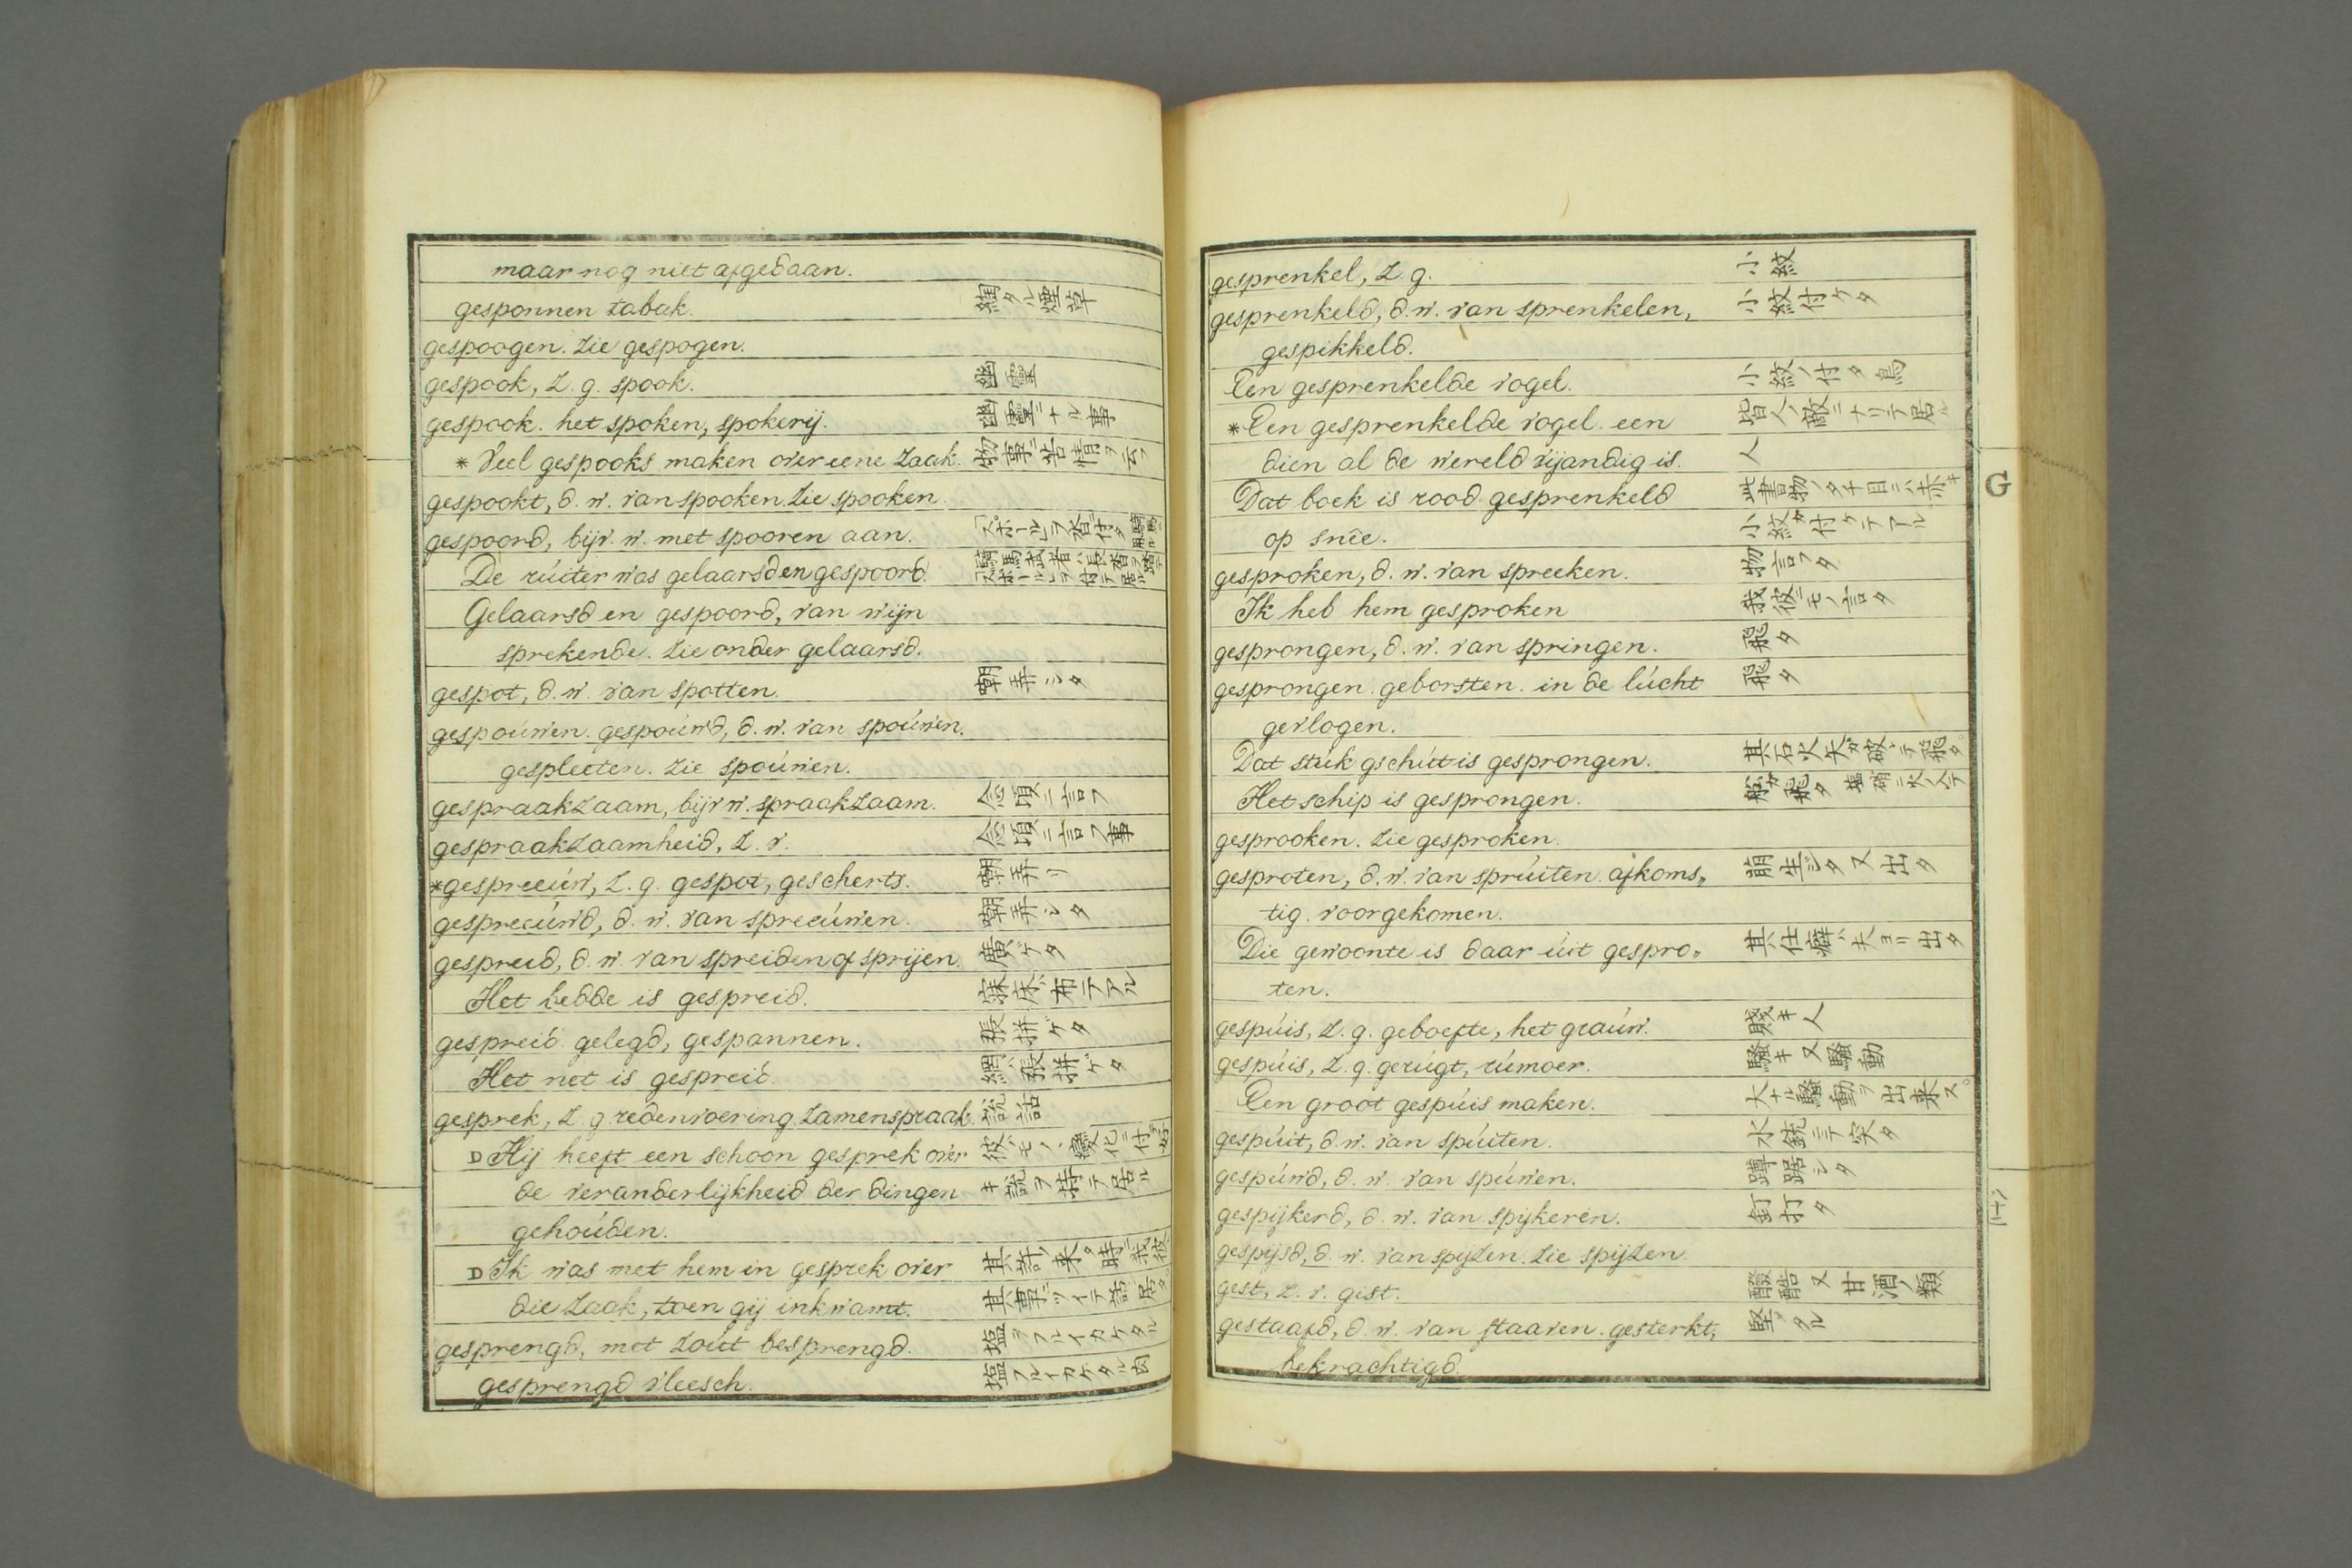 maar nog niet afgedaan.
gesponnen tabak. 綯タル煙草
gespoogen. zie gespogen.
gespook, z. g. spook. 幽霊
gespook. het spoken, spokerij. 幽霊ニナル事
*Veel gespooks maken over eene zaak. 物事ニ苦情ヲ云フ
gespookt, d. w. van spooken. zie spooken
gespoord, bijv. w. met spooren aan.
De rúiter was gelaarsd en gespoord.
Gelaarsd en gespoord, van wijn
sprekende. zie onder gelaarsd.
gespot, d. w. van spotten. 嘲弄シタ
gespoúwen. gespoúwd, d. w. van spoúwen.
gespleeten. zie spoúwen.
gespraakzaam, bijv w. spraakzaam. 念頃ニ言フ
gespraakzaamheid, z. v. 念頃ニ言フ事
*gespreeúw, z. g. gespot, gescherts. 嘲弄リ
gespreeúwd, d. w. van spreeúwen. 嘲弄シタ
gespreid, d. w. van spreiden of sprijen. 廣ゲタ
Het bedde is gespreid. 寐床ハ布テアル
gespreid. gelegd, gespannen. 張拼ゲタ
Het net is gespreid. 網ハ張拼ゲタ
gesprek, z. g redenvoering. zamenspraak. 説話
D Hij heeft een schoon gesprek over
de veranderlijkheid der dingen キ説ヲ持テ居ル
gehoúden.
D Ik was met hem in gesprek over
die zaak, toen gij inkwamt.
gesprengd, met zoút besprengd. 塩ヲフルイカケタル
gesprengd vleesch. 塩フルイカケタル肉
gesprenkel, z. g. 小紋
gesprenkeld, d. w. van sprenkelen, 小紋付ケタ
gespikkeld.
Een gesprenkelde vogel. 小紋ノ付タ鳥
*Een gesprenkelde vogel. een 皆人ノ敵ニナリテ居ル
dien al de wereld vijandig is. 人
Dat boek is rood gesprenkeld 此書物ノタチ目ニハ赤キ
op snêe. 小紋ガ付ケテアル
gesproken, d. w. van spreeken. 物言フタ
Ik heb hem gesproken 我彼ニモノ言タ
gesprongen, d. w. van springen. 飛タ
gesprongen. geborsten. in de lúcht 飛タ
gevlogen.
Dat stúk gschút is gesprongen. 其石火矢ガ破テ飛タ
Het schip is gesprongen. 船ガ飛タ 塩硝ニ火ノ入テ
gesprooken. zie gesproken.
gesproten, d. w. van sprúiten. afkoms„ 萌生ジタ又出タ
tig. voorgekomen.
Die gewoonte is daar úit gespro„ 其仕癖ハ夫ヨリ出タ
ten.
gespúis, z. g. geboefte, het graúw. 賤キ人
gespúis, z. g. gerúgt, rúmoer. 騒キ又騒動
Een groot gespúis maken. 大ナル騒動ヲ出来ス
gespúit, d. w. van spúiten. 水銃ニテ突タ
gespúwd, d. w. van spúwen. 蹲踞シタ
gespijkerd, d. w. van spijkeren. 釘打タ
gespijsd, d. w. van spijzen. zie spijzen
gest, z. v. gist. 醱酷又甘酒ノ類
gestaafd, d. w. van staaven. gesterkt, 堅タル
bekrachtigd.
G